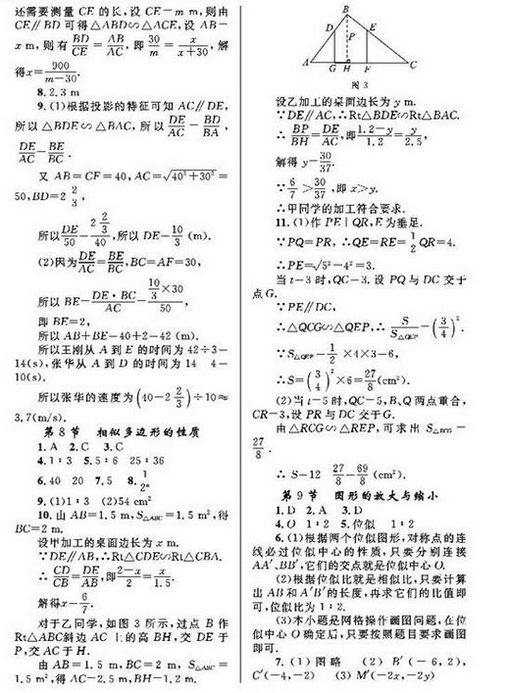 还需要测量 CE 的长,设 CE=m m,则由
CE∥BD 可得△ABD∽△ACE,设 AB=
x m,则有 BD/CE=AB/AC,即 30/m=x/(x+30),解
得x=900/(m-30).
8.2.3 m
9.(1)根据投影的特征可知 AC∥DE,
所以△BDE∽△BAC,所以 DE/AC=BD/BA,
DE/AC=BE/BC.
又 AB=CF=40,AC=√(40²+30²)=
50,BD=2 2/3,
所以 DE/50=(2 2/3)/40,所以 DE=10/3 (m).
(2)因为 DE/AC=BE/BC,BC=AF=30,
所以 BE=DE·BC/AC=(10/3×30)/50,
即 BE=2,
所以 AB+BE=40+2=42 (m).
所以王刚从 A 到 E 的时间为 42÷3=
14(s),张华从 A 到 D 的时间为 14-4=
10(s).
所以张华的速度为(40-2 2/3)÷10≈
3.7(m/s).
第8节 相似多边形的性质
1.A 2.C 3.C
4.1∶3 5.5∶6 25∶36
6.40 20 7.5 8.1/2ⁿ
9.(1)1∶3 (2)54 cm²
10.由 AB=1.5 m,S△ABC=1.5 m²,得
BC=2 m.
设甲加工的桌面边长为 x m.
∵DE∥AB,∴Rt△CDE∽Rt△CBA.
∴CD/CB=DE/AB,即(2-x)/2=x/1.5.
解得x=6/7.
对于乙同学,如图 3 所示,过点 B 作
Rt△ABC斜边 AC 上的高 BH,交 DE 于
P,交 AC 于 H.
由 AB=1.5 m,BC=2 m,S△ABC=
1.5 m²,得 AC=2.5 m,BH=1.2 m.
B
D
E
P
A
G
H
F
C
图 3
设乙加工的桌面边长为 y m.
∵DE∥AC,∴Rt△BDE∽Rt△BAC.
∴BP/BH=DE/AC,即(1.2-y)/1.2=y/2.5,
解得 y=30/37.
∵6/7>30/37,即 x>y.
∴甲同学的加工符合要求.
11.(1)作 PE⊥QR,E为垂足.
∵PQ=PR,∴QE=RE=1/2QR=4.
∴PE=√(5²-4²)=3.
当 t=3 时,QC=3.设 PQ 与 DC 交于
点G.
∵PE∥DC,
∴△QCG∽△QEP,∴S/S△QEP=(3/4)².
∵S△QEP=1/2×4×3=6,
∴S=(3/4)²×6=27/8(cm²).
(2)当 t=5 时,QC=5,B、Q 两点重合,
CR=3,设 PR 与 DC 交于G.
由△RCG∽△REP,可求出 S△RCG=
27/8.
∴S=12-27/8=69/8 (cm²).
第9节 图形的放大与缩小
1.D 2.A 3.D
4.O 1∶2 5.位似 1∶2
6.(1)根据两个位似图形,对称点的连
线必过位似中心的性质,只要分别连接
AA′、BB′,它们的交点就是位似中心O.
(2)根据位似比就是相似比,只要计算
出 AB 和 A′B′的长度,再求它们的比值即
可,位似比为 1∶2.
(3)本小题是网格操作画图问题,在位
似中心 O 确定后,只要按照题目要求画图
即可.
7.(1)图略 (2)B′(-6,2),
C′(-4,-2) (3)M′(-2x,-2y)